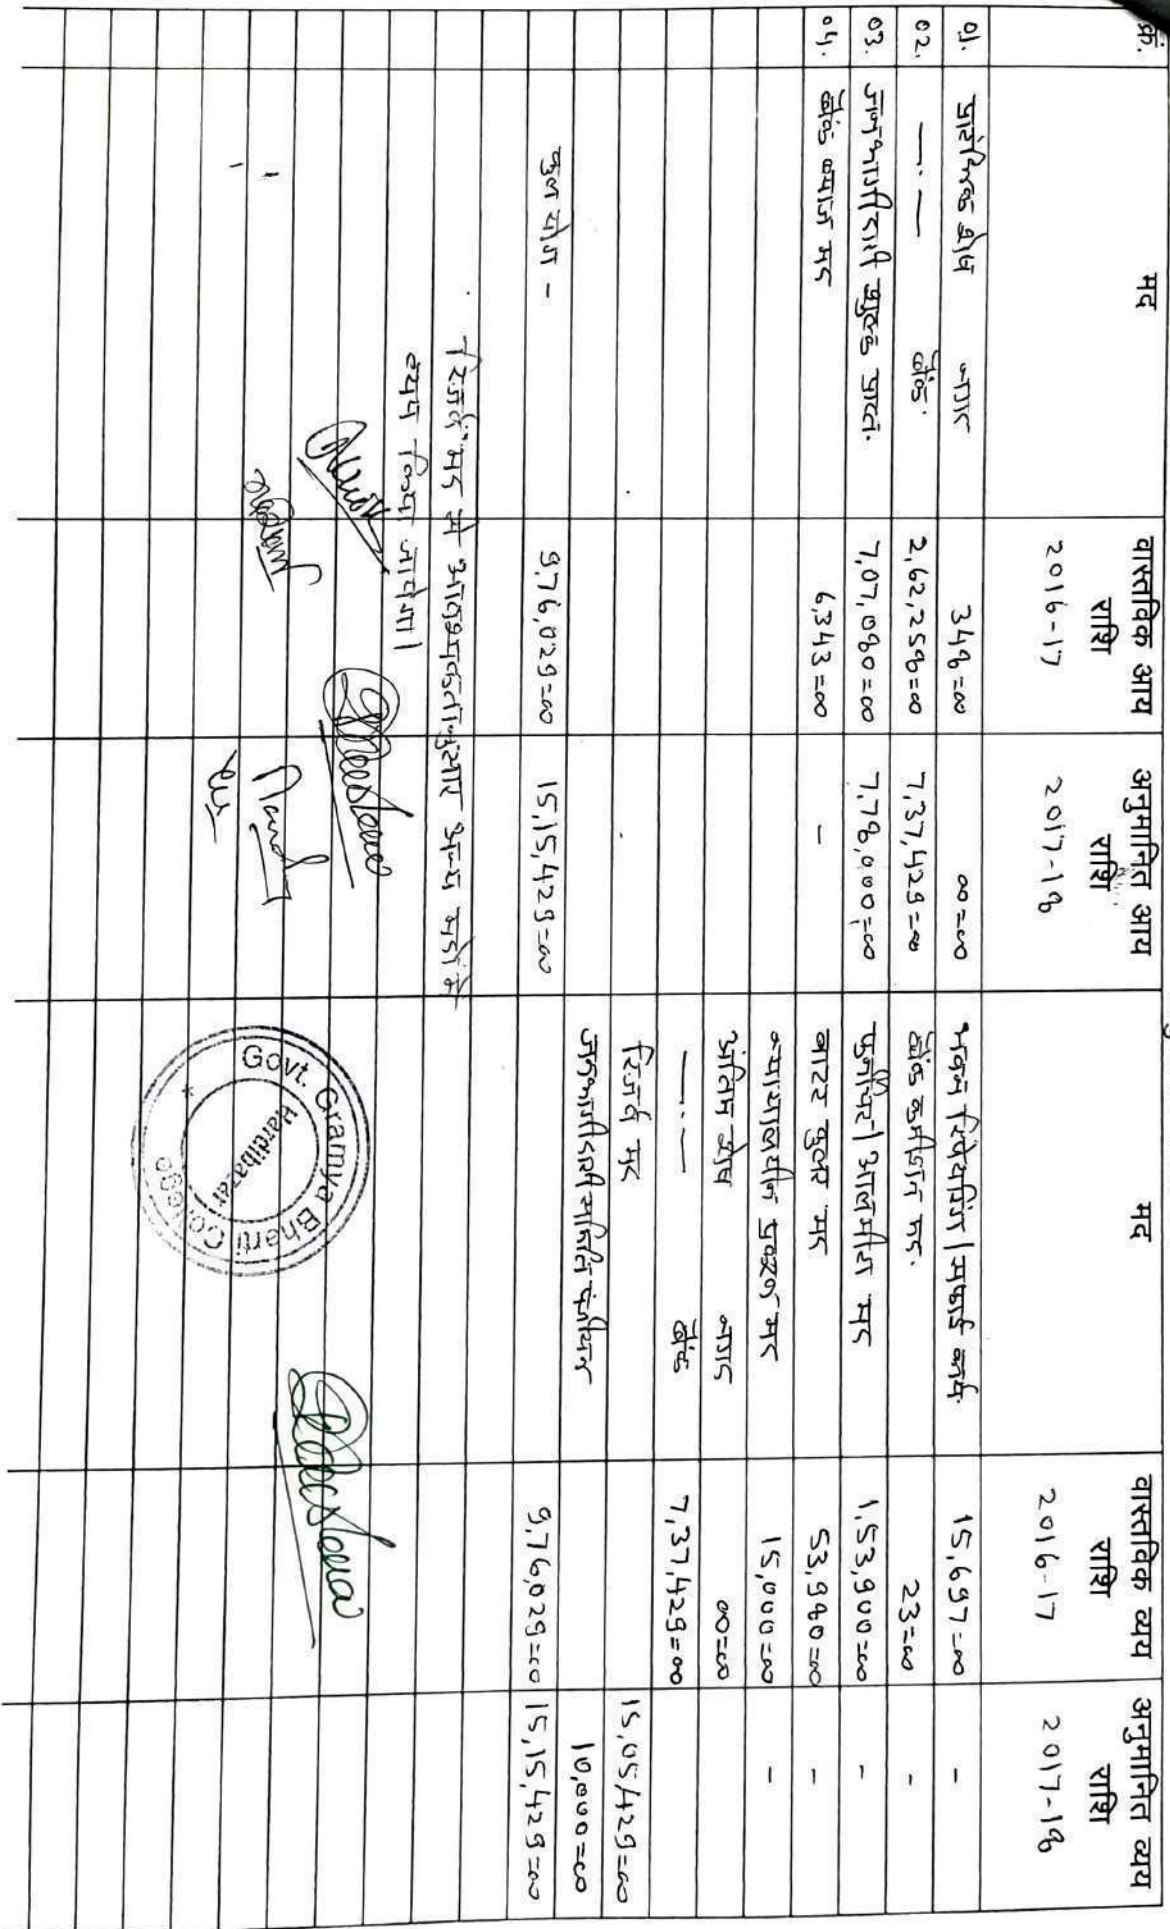 क्रं. मद वास्तविक आय राशि 2016-17 अनुमानित आय राशि 2017-18 मद वास्तविक व्यय राशि 2016-17 अनुमानित व्यय राशि 2017-18
01. प्रारंभिक शेष नगद 348=00 00=00 भवन रिपेयरिंग/सफाई कार्य. 15,697=00 -
02. —·— बैंक. 2,62,258=00 7,37,429=00 बैंक कमीशन मद. 23=00 -
03. जनभागीदारी शुल्क प्राप्त. 7,07,080=00 7,78,000=00 फर्नीचर/आलमीरा मद 1,53,900=00 -
04. बैंक ब्याज मद 6,343=00 - वाटर कुलर मद 53,980=00 -
न्यायालयीन प्रकरण मद 15,000=00 -
अंतिम शेष नगद 00=00
—·— बैंक 7,37,429=00
रिजर्व मद 15,05,429=00
जनभागीदारी समिति पंजीयन 10,000=00
कुल योग - 9,76,029=00 15,15,429=00 9,76,029=00 15,15,429=00
रिजर्व मद से आवश्यकतानुसार अन्य मदों में
व्यय किया जायेगा।
Govt. Gramya Bharti College
Hardibazar